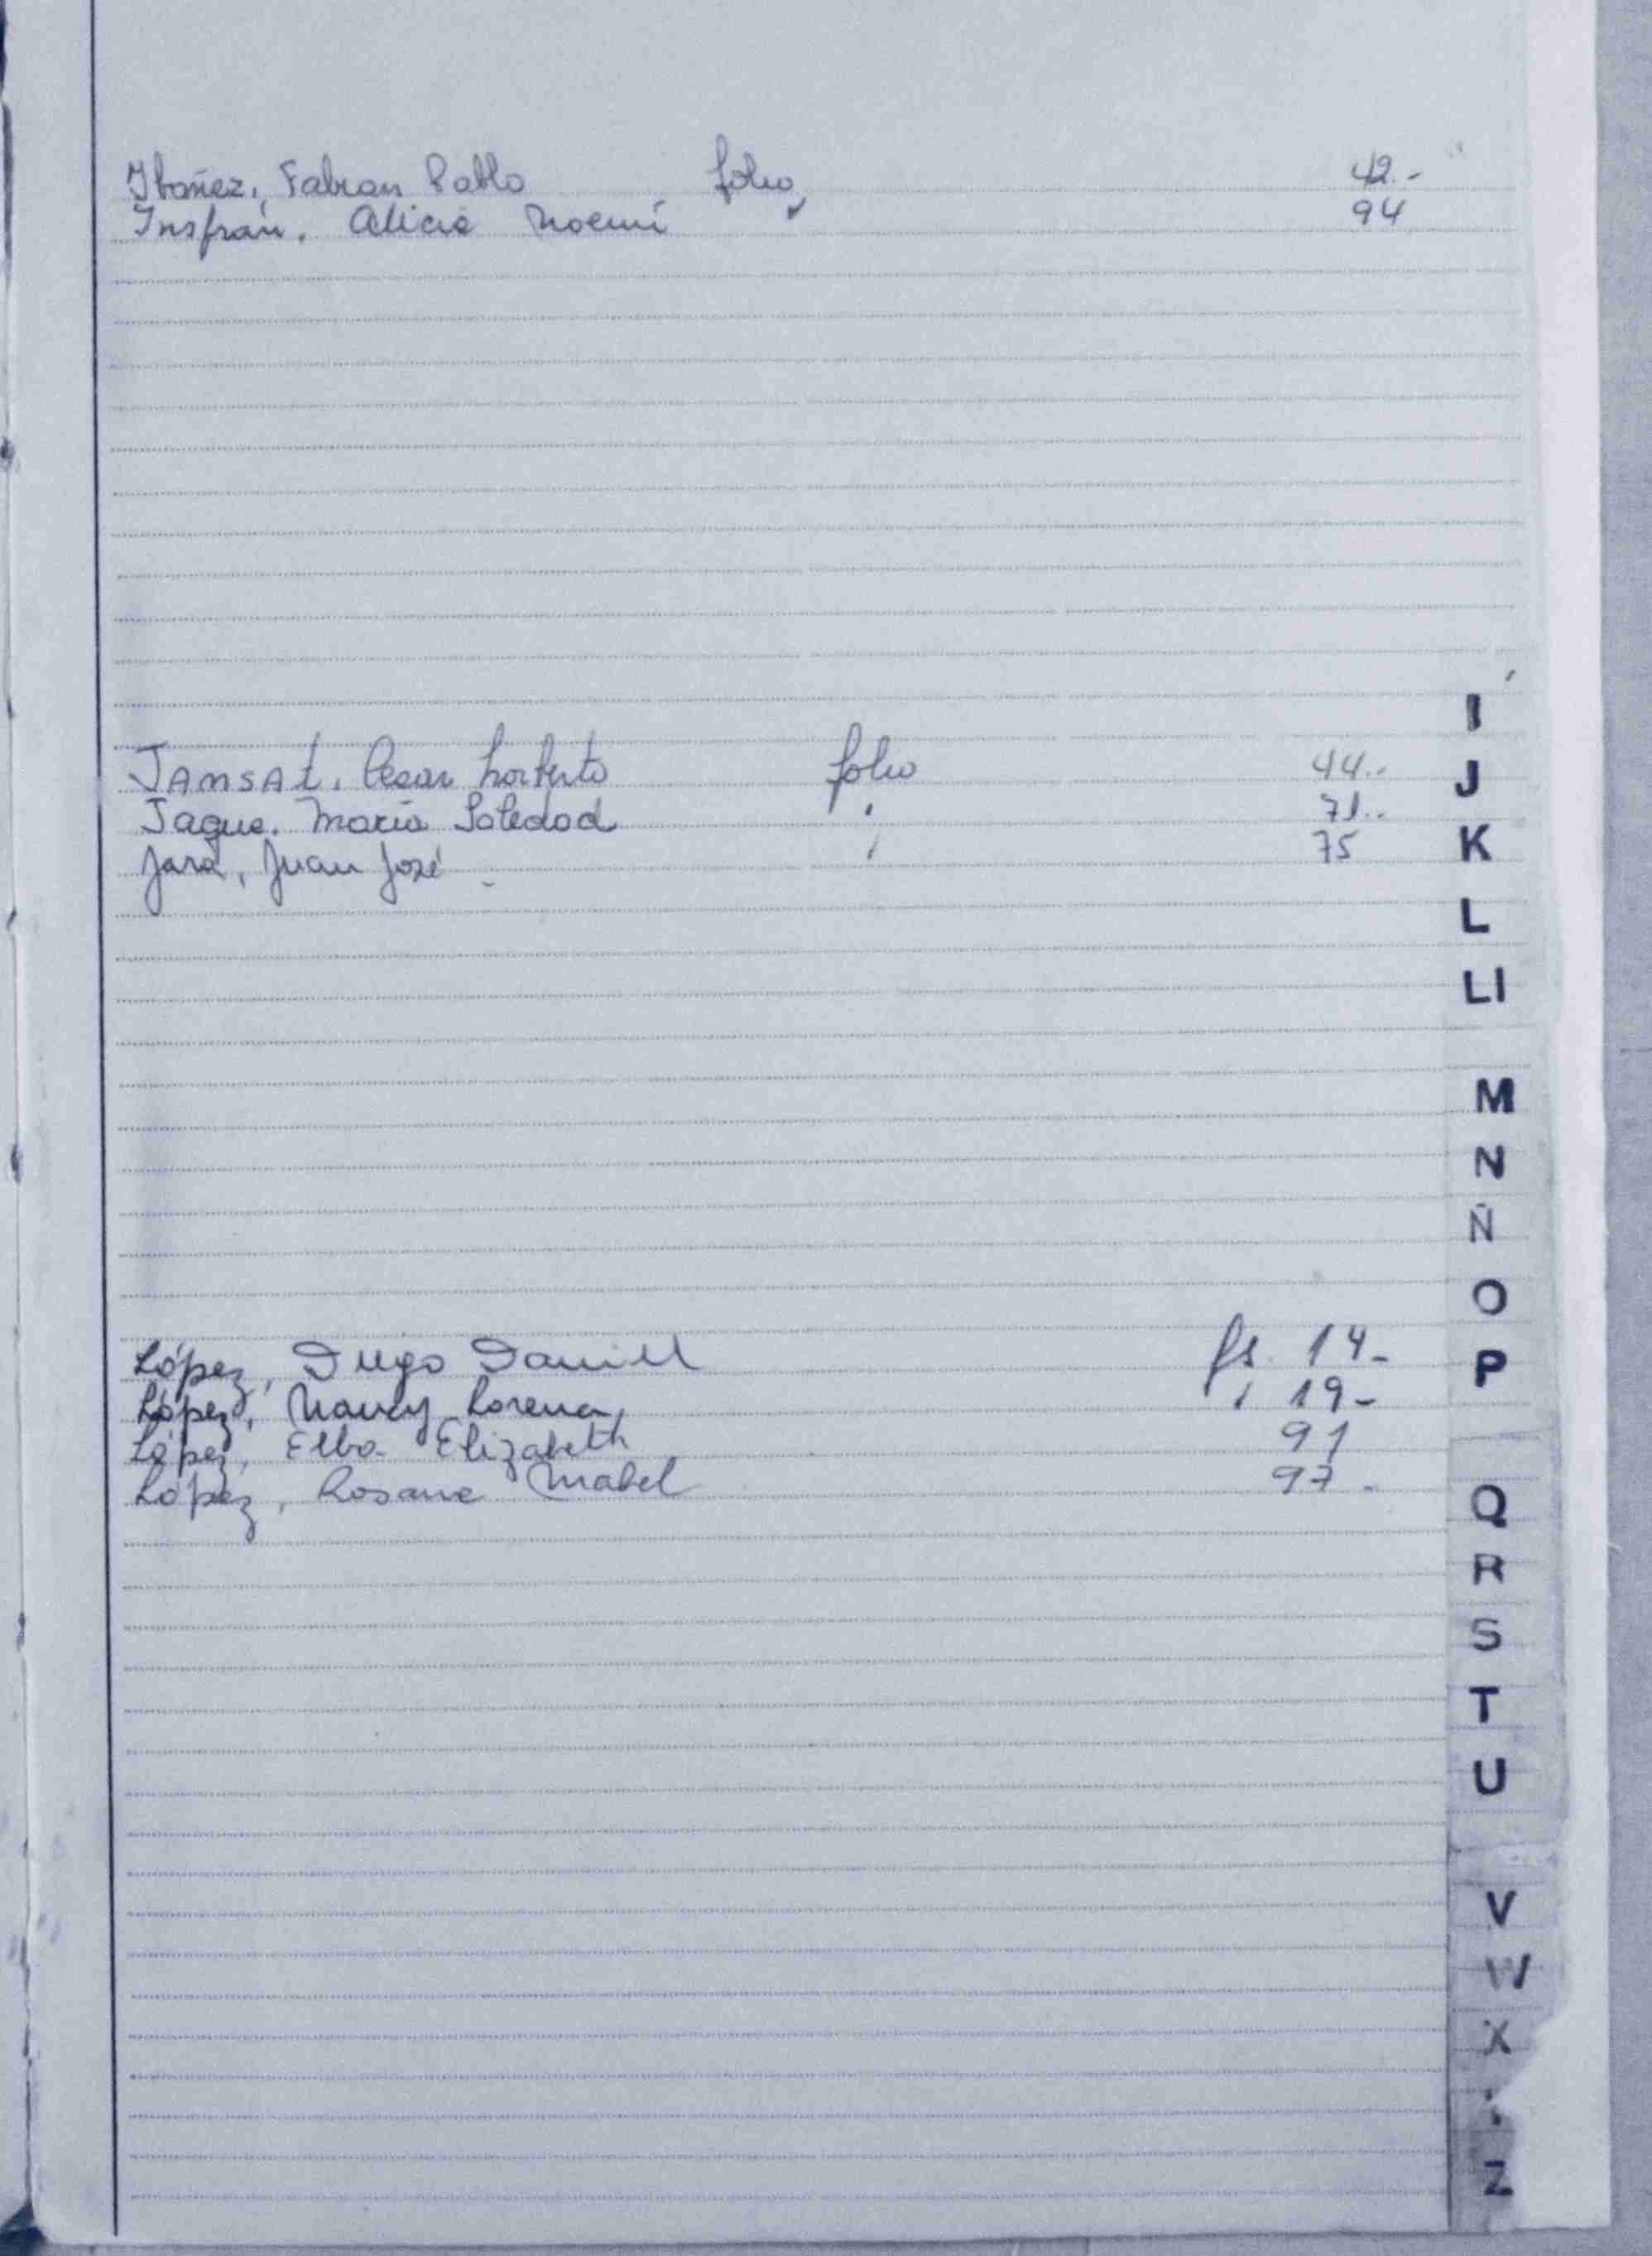 Ibañez, Fabian Pablo folio 42.-
Insfrán. Alicia Noemí " 94
I
JANSAt. Cesar Norberto folio 44.-
J
Jague. María Soledad " 71.-
Jara, Juan José " 75
K
L
Ll
M
N
Ñ
O
López, Diego Daniel fs. 14-
P
López, Nancy Lorena " 19-
López, Elba Elizabeth 91
López, Rosana Mabel 97.
Q
R
S
T
U
V
W
X
Z